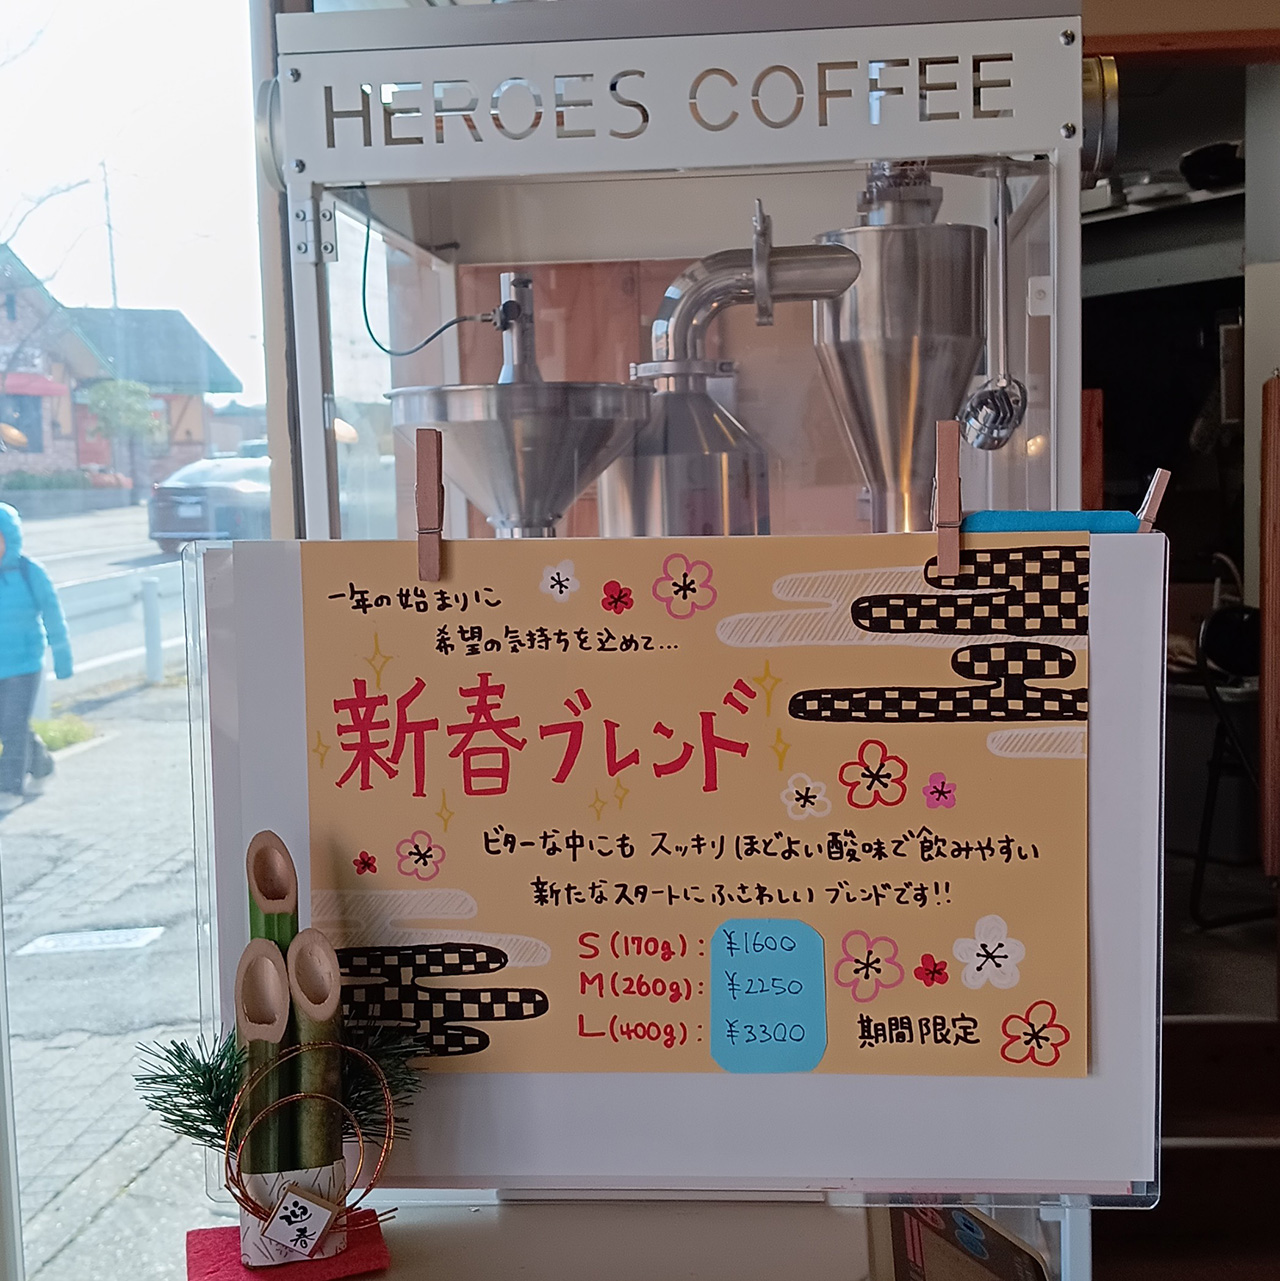 HEROES COFFEE
一年の始まりに
希望の気持ちを込めて…
新春ブレンド
ビターな中にも スッキリ ほどよい酸味で飲みやすい
新たなスタートにふさわしい ブレンドです!!
S(170g): ¥1600
M(260g): ¥2250
L(400g): ¥3300
期間限定
迎春